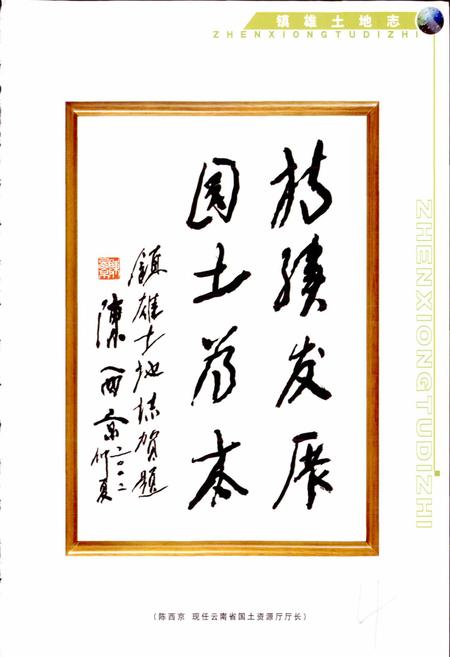 镇雄土地志
ZHENXIONGTUDIZHI
ZHENXIONGTUDIZHI
持續发展
国土为本
鎮雄土地志贺题
陈西京
二〇〇二
仲夏
(陈西京 现任云南省国土资源厅厅长)